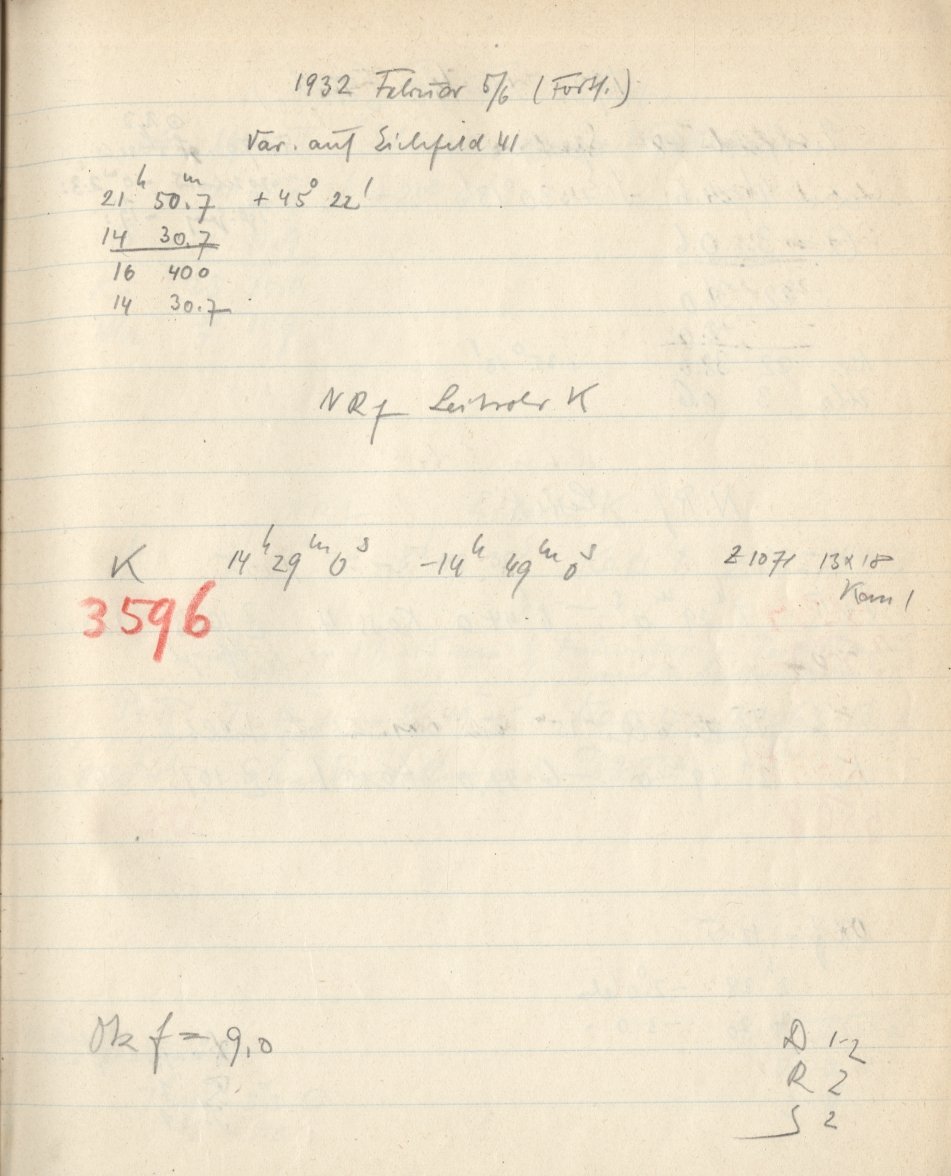 1932 Februar 5/6 (Forts.)
Var. auf Eichfeld 41
21h 50.7m +45° 22'
14 30.7
16 400
14 30.7
NRf Leitrohr K
K 14h 29m 0s -14h 49m 0s Z 1071 13x18
Kam 1
3596
Ok f = 9,0
D 1-2
R 2
S 2